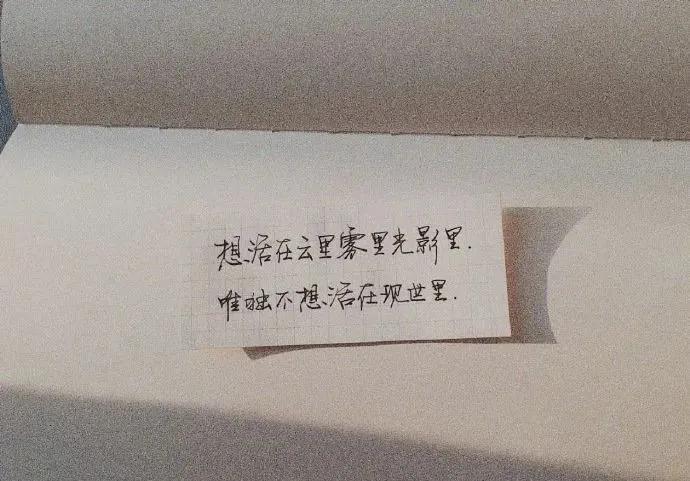 想活在云里雾里光影里.
唯独不想活在现世里.